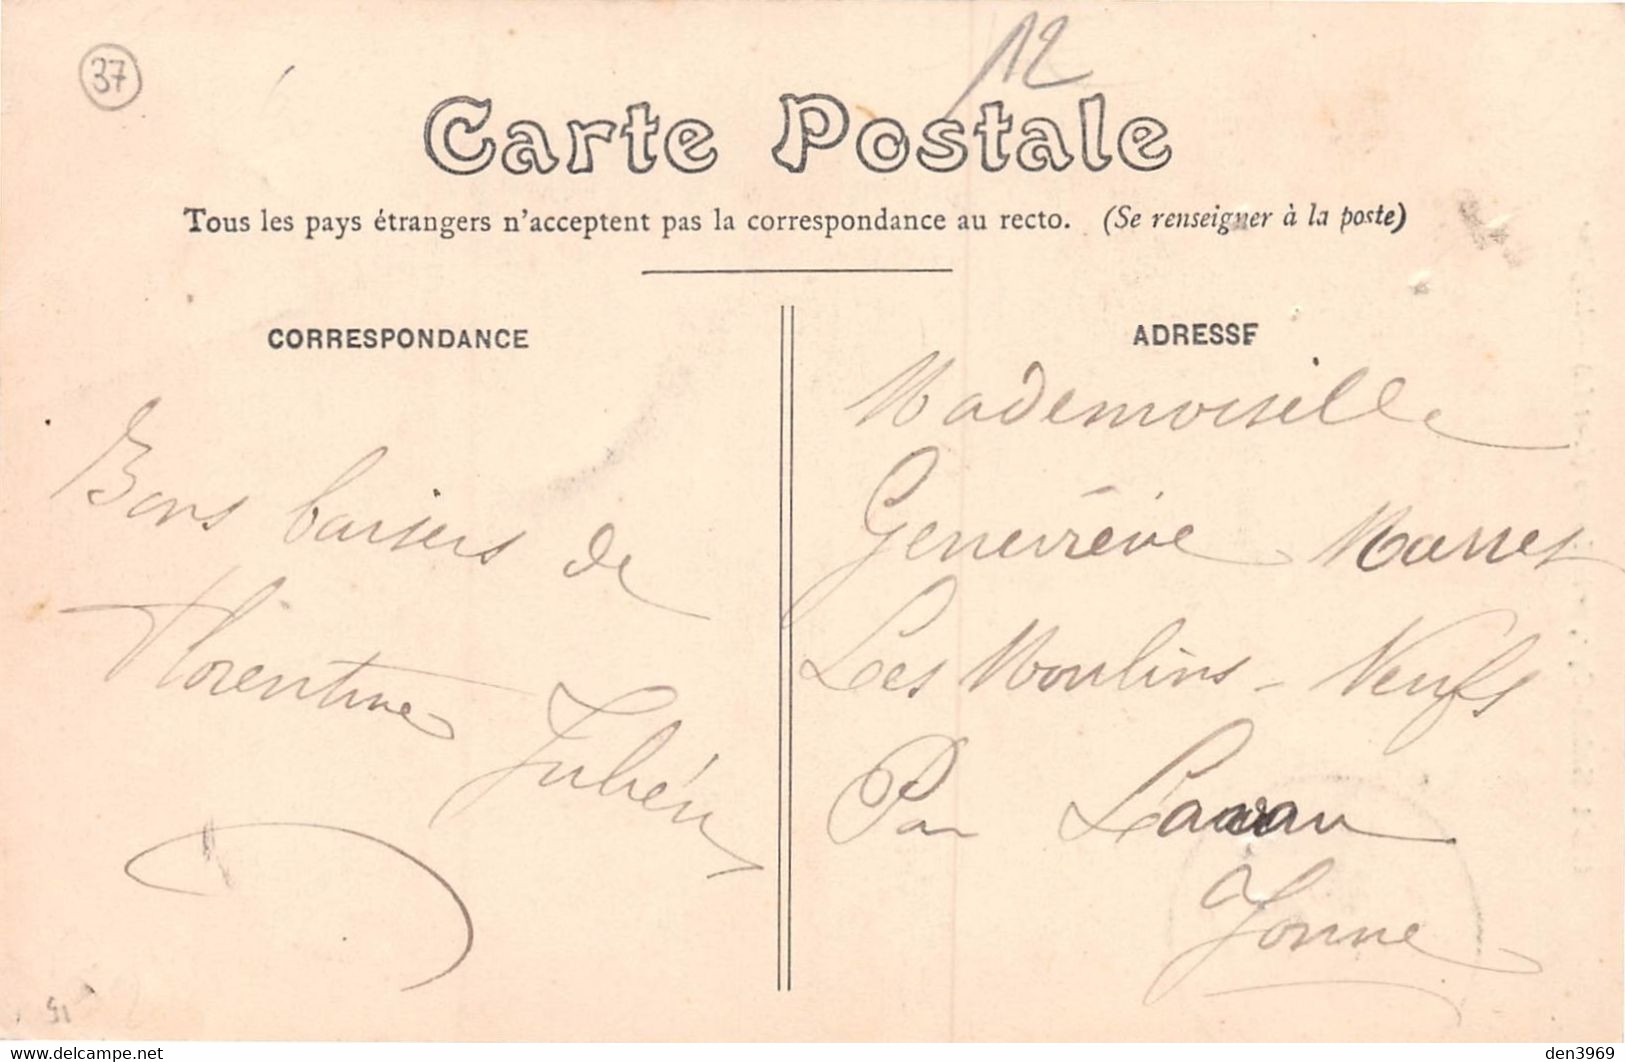 37
12
Carte Postale
Tous les pays étrangers n'acceptent pas la correspondance au recto. (Se renseigner à la poste)
CORRESPONDANCE
Bons baisers de
Florentine Julién
ADRESSE
Mademoiselle
Geneviève
Les Moulins - Neufs
Par
Yonne
den3969